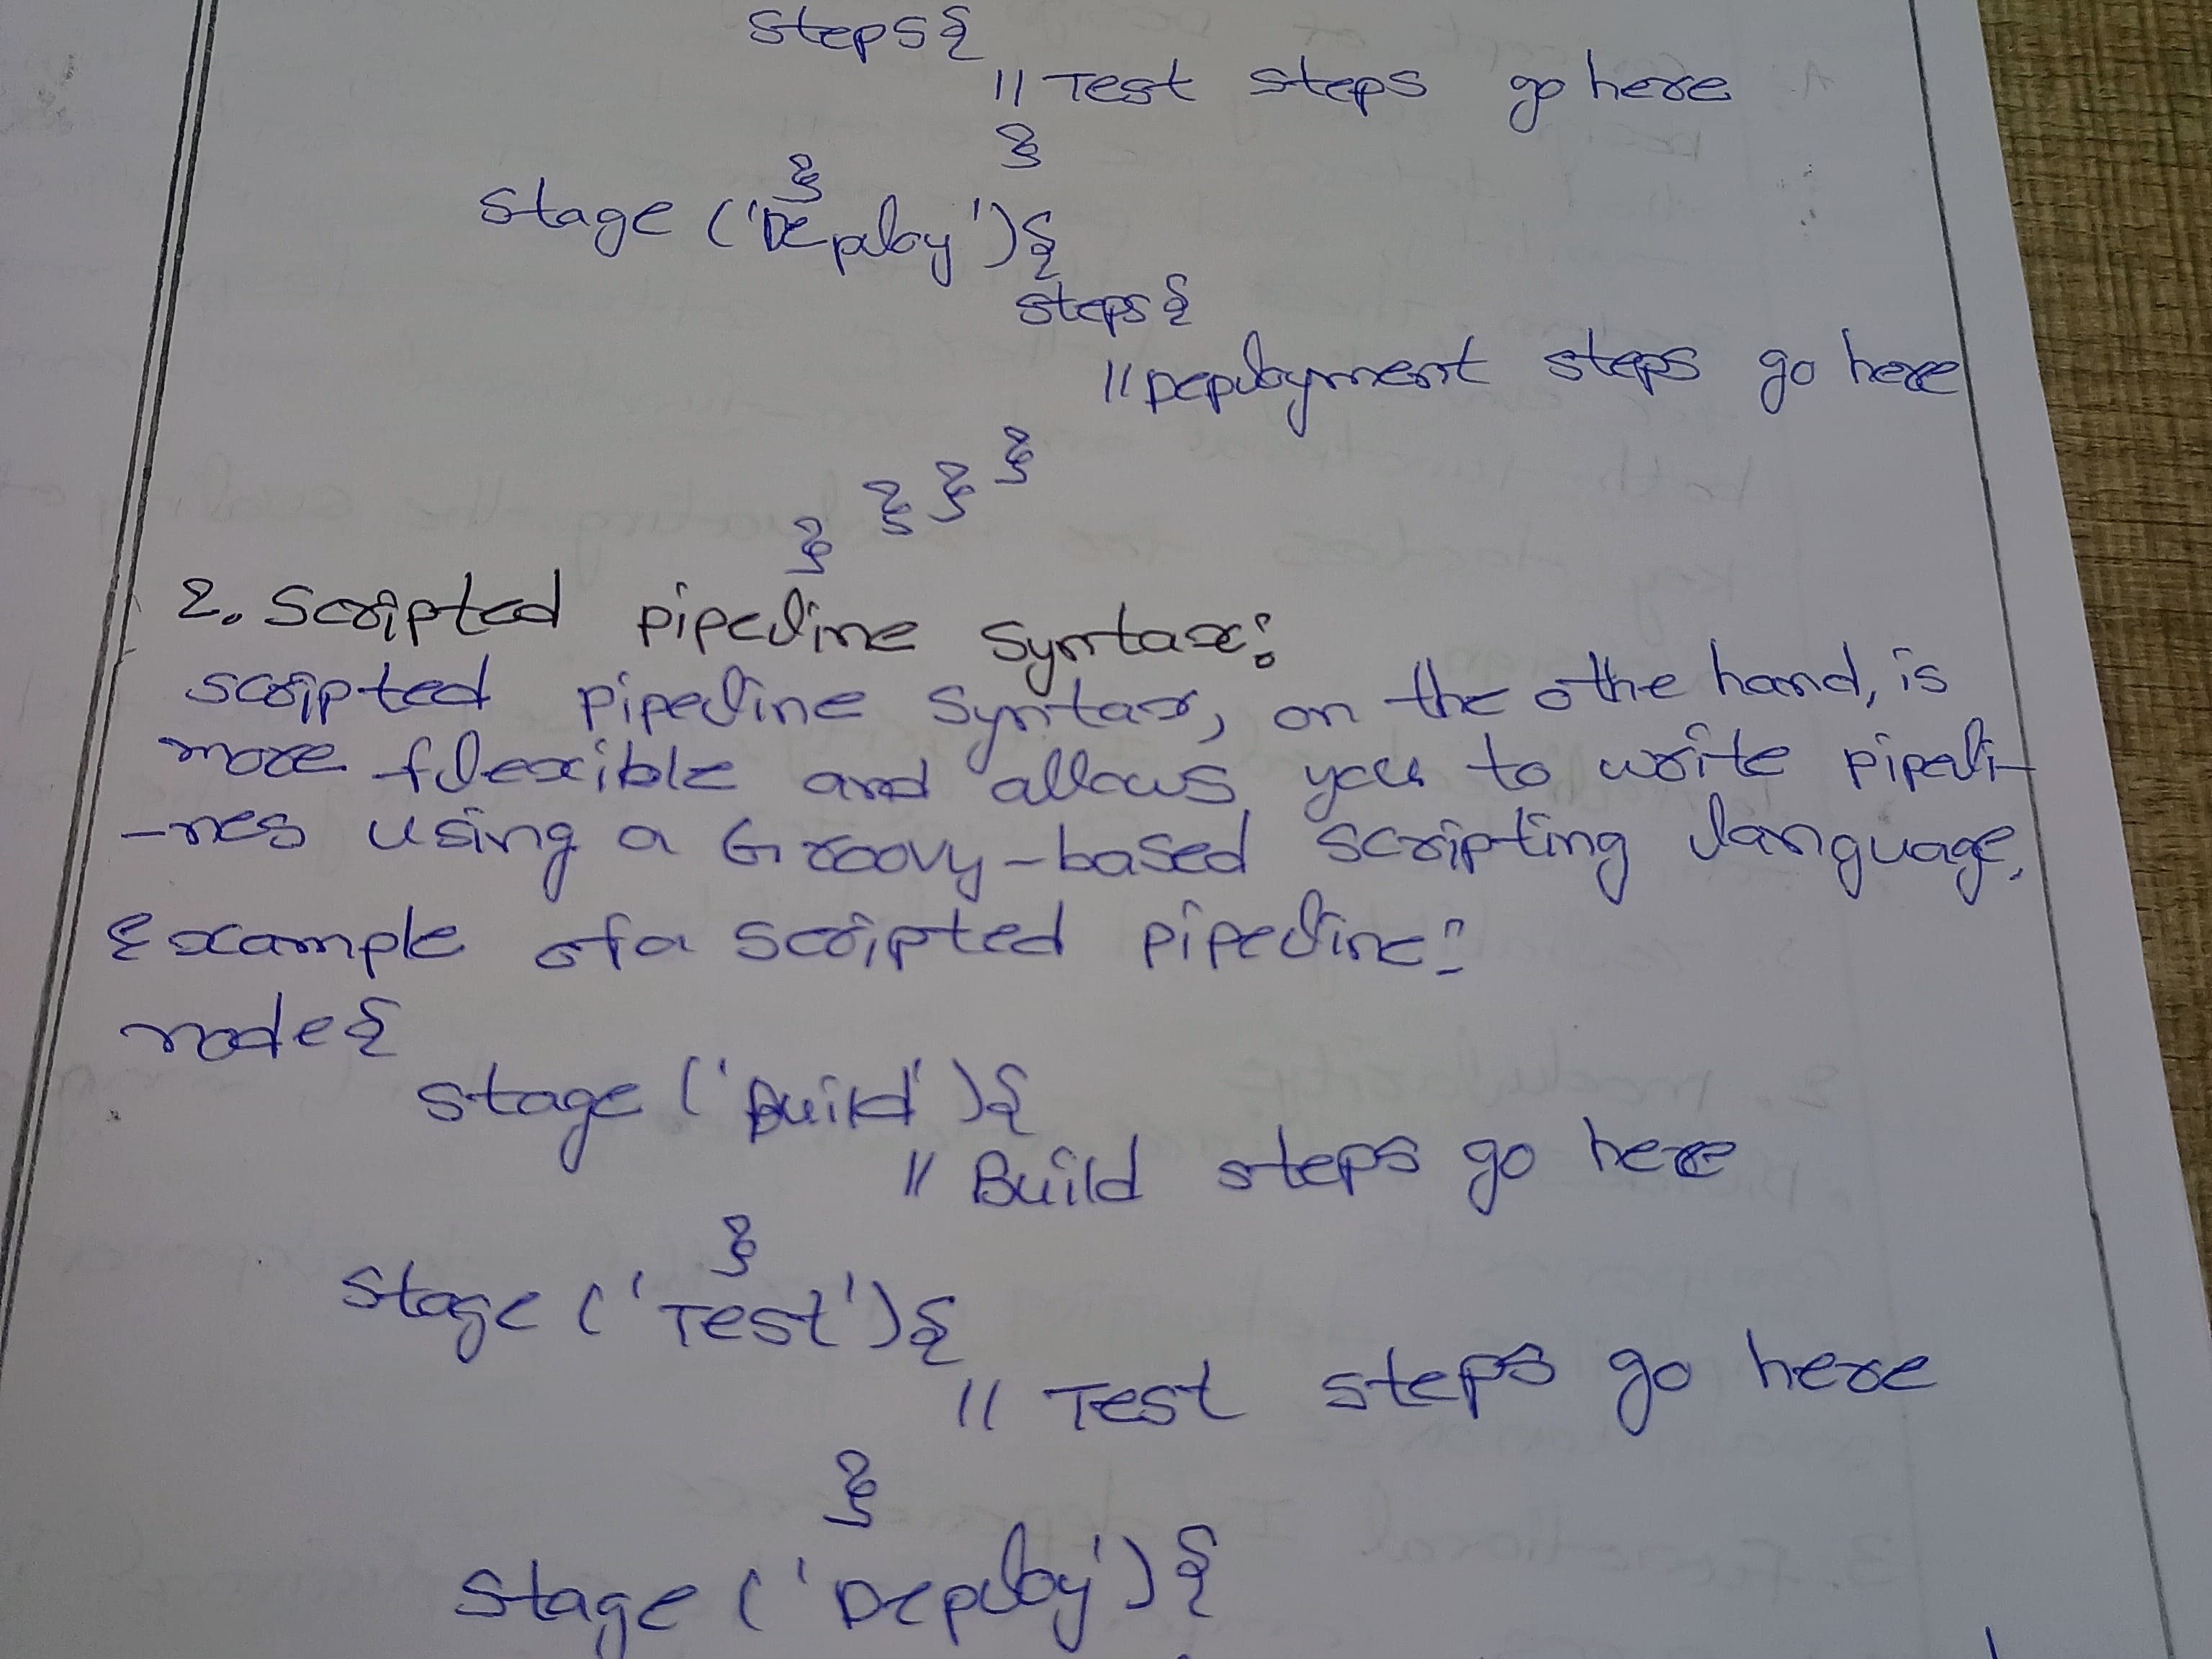 steps{
// Test steps go here
}
}
stage ('Deploy'){
steps{
// Deployment steps go here
}
}
}
}
2. Scripted pipeline syntax:
scripted pipeline syntax, on the othe hand, is
more flexible and allows you to write pipeli-
-nes using a Groovy-based scripting language.
Example of a scripted pipeline:
node{
stage ('Build'){
// Build steps go here
}
stage ('Test'){
// Test steps go here
}
stage ('Deploy'){